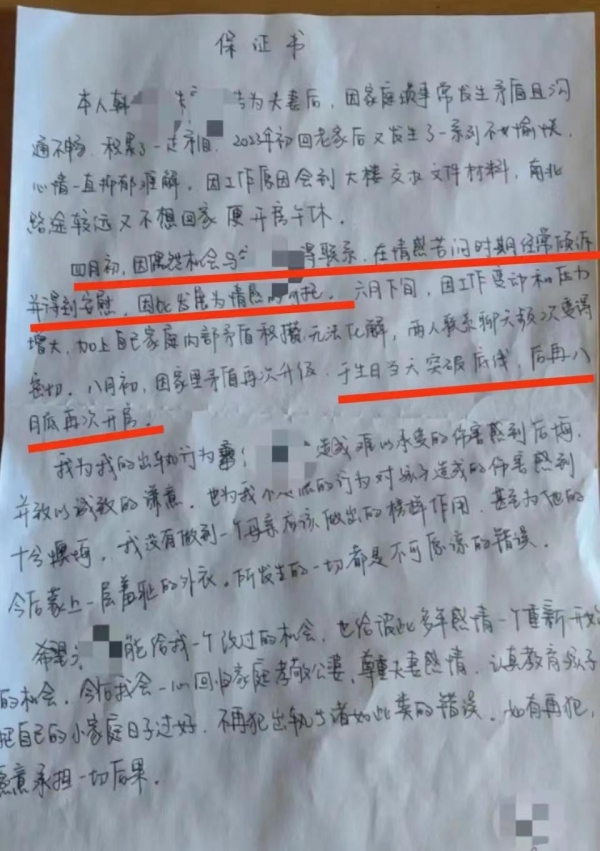 保证书
本人韩 与 结为夫妻后，因家庭琐事常发生矛盾且沟
通不畅，积累了一 矛盾，2023年初回老家后又发生了一系列不愉快，
心情一直抑郁难解，因工作原因会到大楼交接文件材料，南北
路途较远又不想回家便开房午休。
四月初，因偶然机会与 得联系，在情感苦闷时期经常倾诉
并得到安慰，因此发展为情感 寄托。六月下旬，因工作变动和压力
增大，加上自己家庭内部矛盾积攒无法化解，两人联系聊天频次变得
密切，八月初，因家里矛盾再次升级，于生日当天突破底线，后再八
月底再次开房。
我为我的出轨行为 造成难以承受的伤害感到后悔，
并致以诚致的谦意，也为我个人 的行为对孩子造成的伤害感到
十分懊悔，我没有做到一个母亲应该做出的榜样作用，甚至为他的
今后蒙上一层羞耻的外衣。所发生的一切都是不可原谅的错误。
希望 能给我一个改过的机会，也给彼此多年感情一个重新开始
的机会，今后我会一心回归家庭孝敬公婆，尊重夫妻感情，认真教育孩子
把自己的小家庭日子过好，不再犯出轨等诸如此类的错误，如有再犯，
愿意承担一切后果。